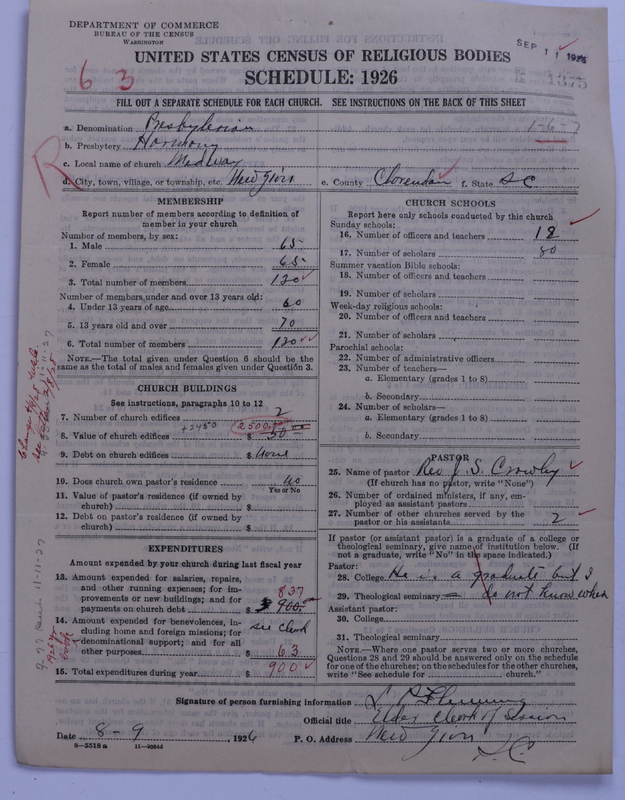 DEPARTMENT OF COMMERCE
BUREAU OF THE CENSUS
WASHINGTON
SEP 11 1926
UNITED STATES CENSUS OF RELIGIOUS BODIES
63
SCHEDULE: 1926
1375
FILL OUT A SEPARATE SCHEDULE FOR EACH CHURCH. SEE INSTRUCTIONS ON THE BACK OF THIS SHEET
a. Denomination Presbyterian
1-6-7
b. Presbytery Harmony
R
c. Local name of church Midway
d. City, town, village, or township, etc. New Zion e. County Clarendon f. State S C
MEMBERSHIP
Report number of members according to definition of
member in your church
Number of members, by sex:
1. Male 65
2. Female 65
3. Total number of members 130
Number of members under and over 13 years old:
4. Under 13 years of age 60
5. 13 years old and over 70
6. Total number of members 130
NOTE.—The total given under Question 6 should be the
same as the total of males and females given under Question 3.
CHURCH BUILDINGS
See instructions, paragraphs 10 to 12
7. Number of church edifices 2
+2450 2500.00
8. Value of church edifices $ 50
9. Debt on church edifices $ None
10. Does church own pastor's residence No
Yes or No
11. Value of pastor's residence (if owned by
church) $
12. Debt on pastor's residence (if owned by
church) $
EXPENDITURES
Amount expended by your church during last fiscal year
13. Amount expended for salaries, repairs,
and other running expenses; for im-
provements or new buildings; and for
payments on church debt $ 900.
837
14. Amount expended for benevolences, in-
cluding home and foreign missions; for
denominational support; and for all
other purposes $ 63
see Clerk
15. Total expenditures during year $ 900
CHURCH SCHOOLS
Report here only schools conducted by this church
Sunday schools:
16. Number of officers and teachers 18
17. Number of scholars 80
Summer vacation Bible schools:
18. Number of officers and teachers
19. Number of scholars
Week-day religious schools:
20. Number of officers and teachers
21. Number of scholars
Parochial schools:
22. Number of administrative officers
23. Number of teachers—
a. Elementary (grades 1 to 8)
b. Secondary
24. Number of scholars—
a. Elementary (grades 1 to 8)
b. Secondary
PASTOR
25. Name of pastor Rev J. S. Crowley
(If church has no pastor, write "None")
26. Number of ordained ministers, if any, em-
ployed as assistant pastors
27. Number of other churches served by the
pastor or his assistants 2
If pastor (or assistant pastor) is a graduate of a college or
theological seminary, give name of institution below. (If
not a graduate, write "No" in the space indicated.)
Pastor:
28. College He is a graduate but I
29. Theological seminary do not know when
Assistant pastor:
30. College
31. Theological seminary
NOTE.—Where one pastor serves two or more churches,
Questions 28 and 29 should be answered only on the schedule
for one of the churches; on the schedules for the other churches,
write "See schedule for church."
Signature of person furnishing information L P Fleming
Official title Elder Clerk of Session
Date 8-9, 1926 P. O. Address New Zion
S. C.
8-5518 a